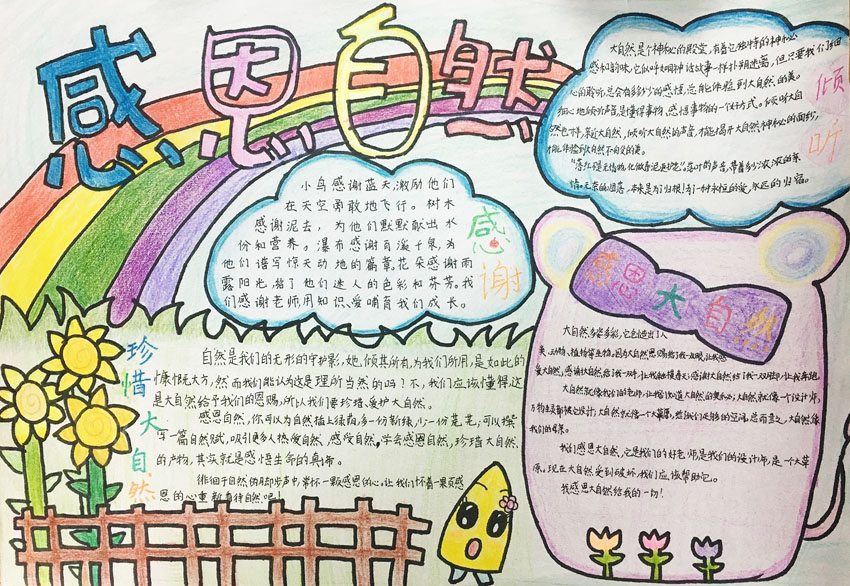 感恩自然
倾听
大自然是个神秘的殿堂,有着它独特的神秘
感和韵味,它似乎如神话故事一样扑朔迷离,但只要我们细
心的聆听,总会有多妙的感悟,总能体验到大自然的美。
细心地倾听声音是懂得事物、感悟事物的一个好方式。倾听大自
然也一样,亲近大自然,倾听大自然的声音,才能揭开大自然神秘的面纱,
才能体验到大自然不同反的美。
落红不是无情物,化做春泥更护花。落叶的声音,带着多少浓浓的亲
情。无奈的回落,本来是为了归根!为了一树永恒的爱,永远的归宿。
感谢
小鸟感谢蓝天,激励他们
在天空勇敢地飞行。树木
感谢泥土,为他们默默献出水
份和营养。瀑布感谢百溪千泉,为
他们谱写惊天动地的篇章,花朵感谢雨
露阳光,给了他们迷人的色彩和芬芳。我
们感谢老师,用知识、爱哺育我们成长。
珍惜大自然
自然是我们的无形的守护影,她倾其所有,为我们所用,是如此的
慷慨大方,然而我们能认为这是理所当然的吗?不,我们应该懂得这
是大自然给予我们的恩赐,所以我们要珍惜、爱护大自然。
感恩自然,你可以为自然插上绿荫,多一份新绿,少一份荒芜;可以撰
写一篇自然赋,吸引更多人热爱自然,感受自然,学会感恩自然,珍惜大自然
的产物,其实就是感悟生命的真谛。
徘徊于自然的脚步声中,常怀一颗感恩的心。让我们怀着一颗感
恩的心重新看待自然吧!
感恩大自然
大自然多姿多彩,它创造出了人
类、动物、植物等生物。因为大自然恩赐给了我一双眼,让我感
受大自然,感谢大自然给了我一双手,让我拥抱春天;感谢大自然给了我一双脚,让我奔跑。
大自然就像我们的老师,让我们知道大自然的奥秘;大自然就像一个设计师,
万物生灵都被它设计;大自然就像一个大草原,给我们足够的空间。总而言之,大自然像
我们的母亲。
我们感恩大自然,它是我们的好老师,是我们的设计师,是一个大草
原。现在大自然受到破坏,我们应该帮助它。
我感恩大自然给我的一切!